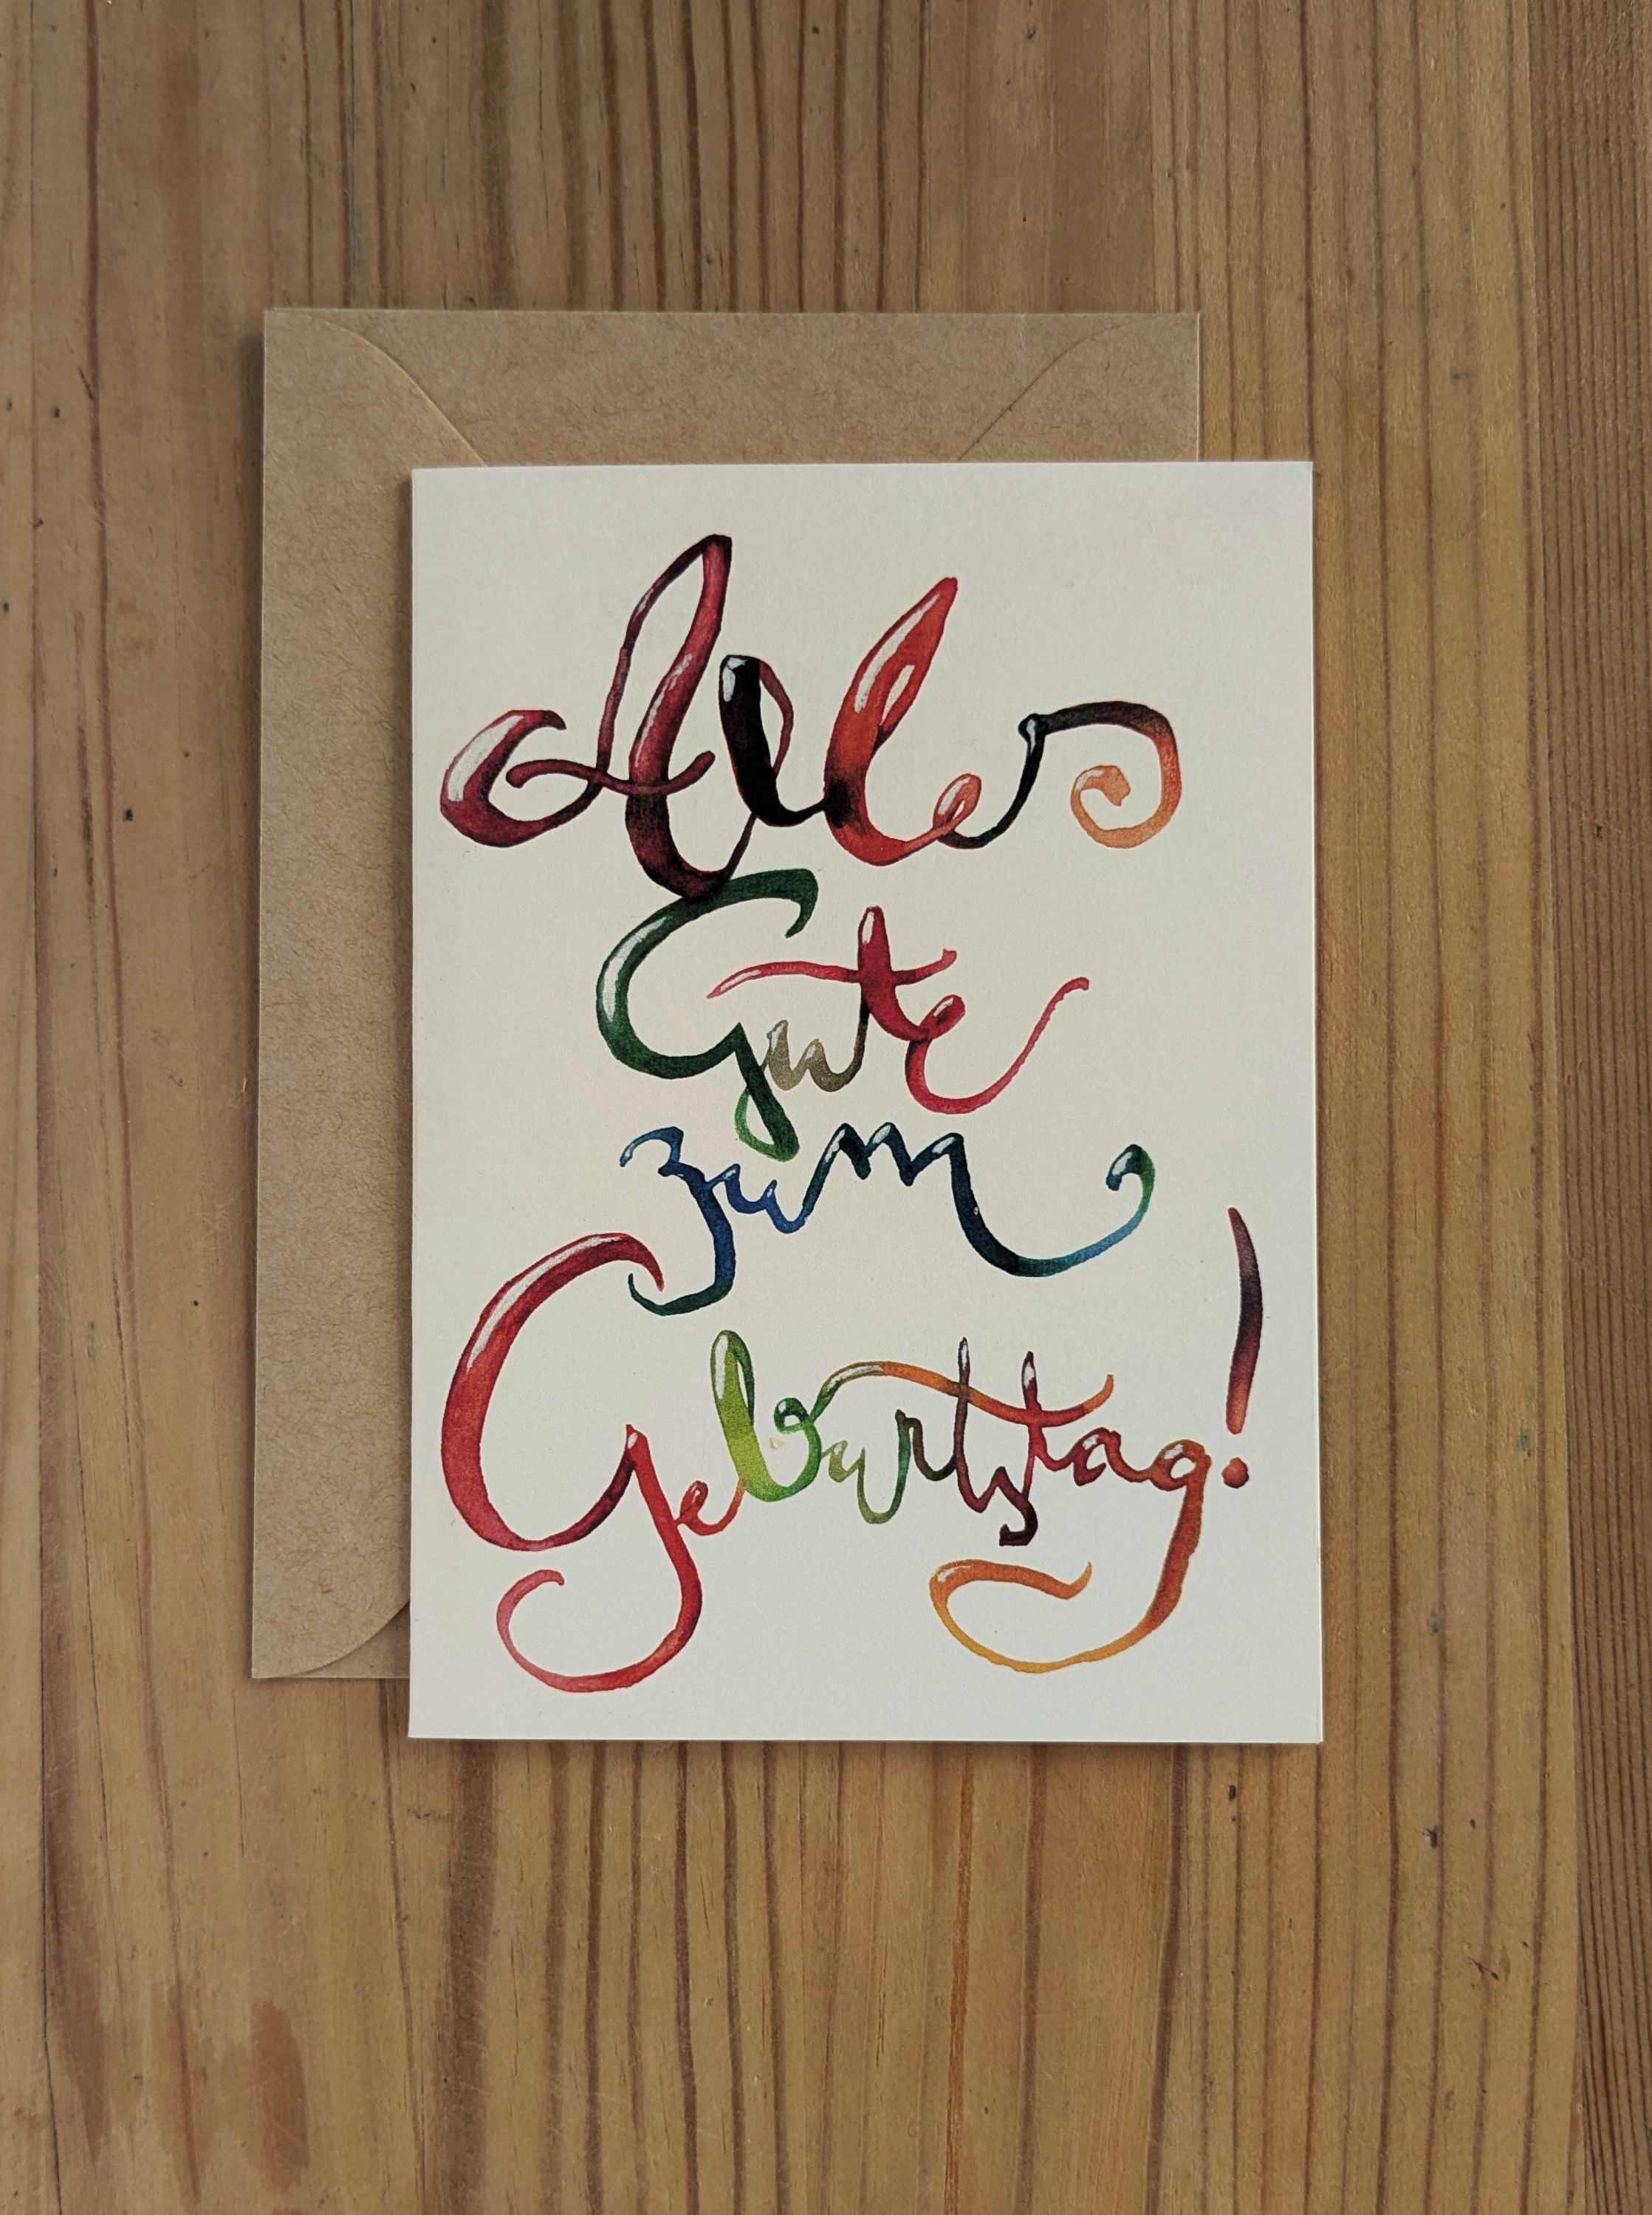 Alles
Gute
zum
Geburtstag!